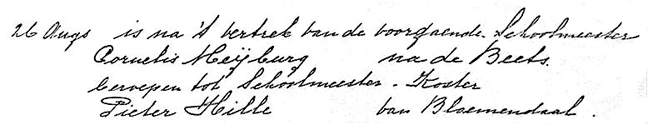 26 Augs is na 't vertrek van de voorgaende Schoolmeester
Cornelis Meÿburg na de Beets.
beroepen tot Schoolmeester - Koster
Pieter Hille van Bloemendaal.